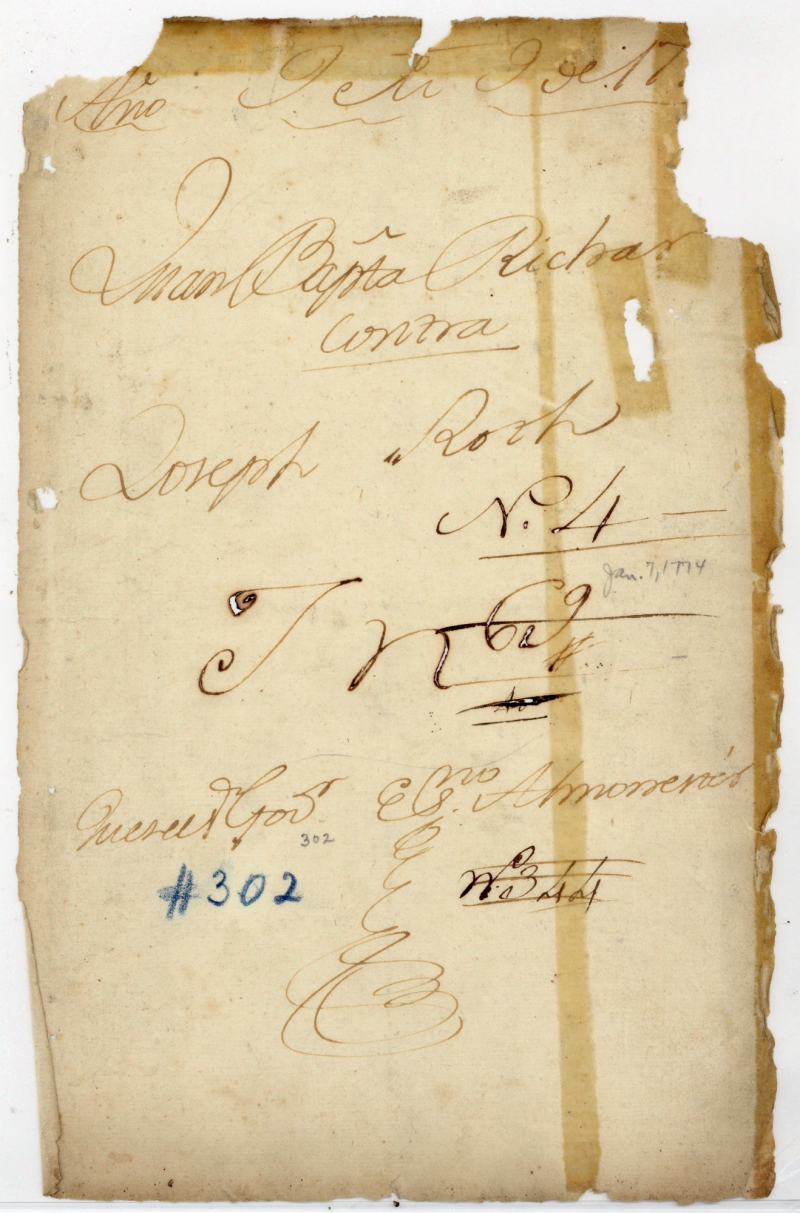 Año de 17
Juan Bapta Richar
Contra
Joseph Roch
No. 4
Jan. 7, 1774
69
Juez el Sr Govr Esno. Almonester
302
#302
No. 344